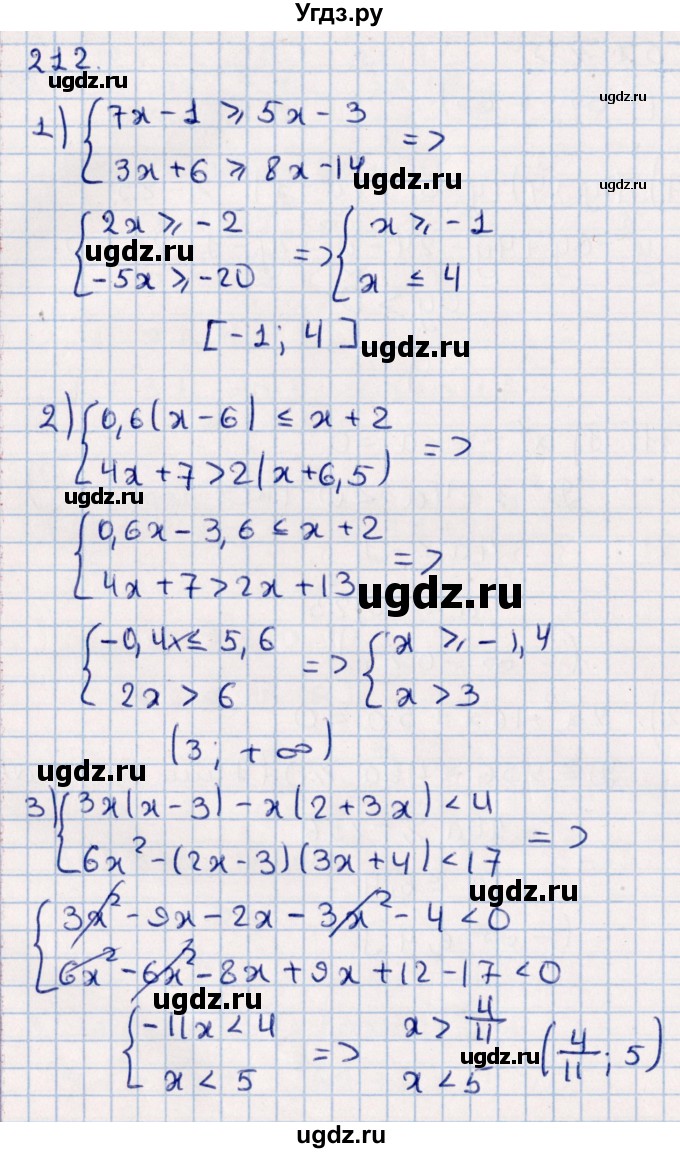 Угдз.ру
212.
ugdz.ru
ugdz.ru
1) { 7x - 1 ⩾ 5x - 3
3x + 6 ⩾ 8x - 14 =>
ugdz.ru
ugdz.ru
{ 2x ⩾ -2
-5x ⩾ -20 => { x ⩾ -1
x ≤ 4
ugdz.ru
[-1; 4]
ugdz.ru
2) { 0,6(x - 6) ≤ x + 2
4x + 7 > 2(x + 6,5) =>
ugdz.ru
{ 0,6x - 3,6 ≤ x + 2
4x + 7 > 2x + 13 =>
ugdz.ru
{ -0,4x ≤ 5,6
2x > 6 => { x ⩾ -1,4
x > 3
(3; +∞)
ugdz.ru
3) { 3x(x - 3) - x(2 + 3x) < 4
6x² - (2x - 3)(3x + 4) < 17 =>
ugdz.ru
{ 3x² - 9x - 2x - 3x² - 4 < 0
6x² - 6x² - 8x + 9x + 12 - 17 < 0
ugdz.ru
{ -11x < 4
x < 5 => x > 4/11
x < 5 (4/11; 5)
ugdz.ru
ugdz.ru